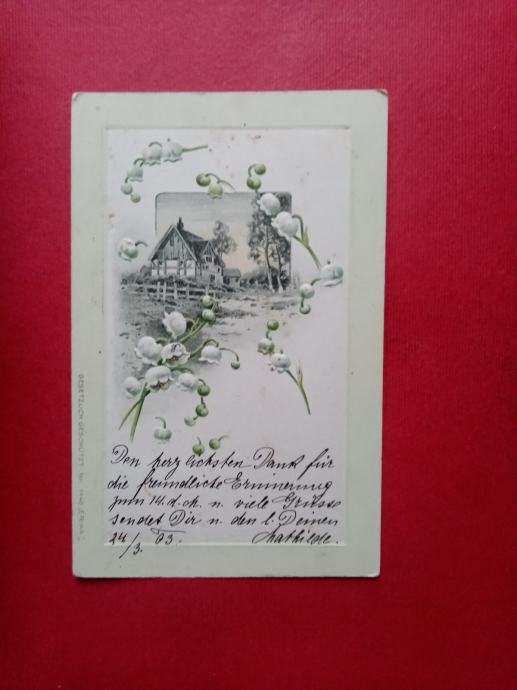 Den herzlichsten Dank für
die freundliche Erinnerung
zum 14. d. M. u. viele Grüsse
sendet Dir u. den l. Deinen
24/3. 03. Mathilde.
GESETZLICH GESCHÜTZT No.